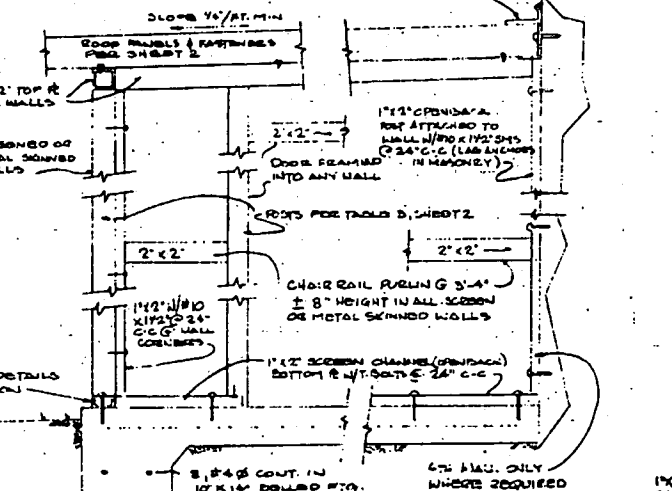 SLOPE 1/4"/FT. MIN
ROOF PANELS & FASTENERS
PER SHEET 2
2" TOP PL
WALLS
2"x2"
DOOR FRAMING
INTO ANY WALL
1"x2" OPENBACK
POST ATTACHED TO
WALL W/#10 x 1 1/2" SMS
@ 24" C-C (LAG ANCHORS
IN MASONRY)
POSTS PER TABLE 3, SHEET 2
2" x 2"
2" x 2"
CHAIR RAIL PURLIN @ 3'-4"
± 8" HEIGHT IN ALL SCREEN
OR METAL SKINNED WALLS
1"x2" W/#10
x 1 1/2" @ 24"
C-C @ WALL
CORNERS
1"x2" SCREEN CHANNEL (OPENBACK)
BOTTOM PL W/T. BOLTS @ 24" C-C
DETAILS
2, #4 Ø CONT. IN
ONLY
WHERE REQUIRED